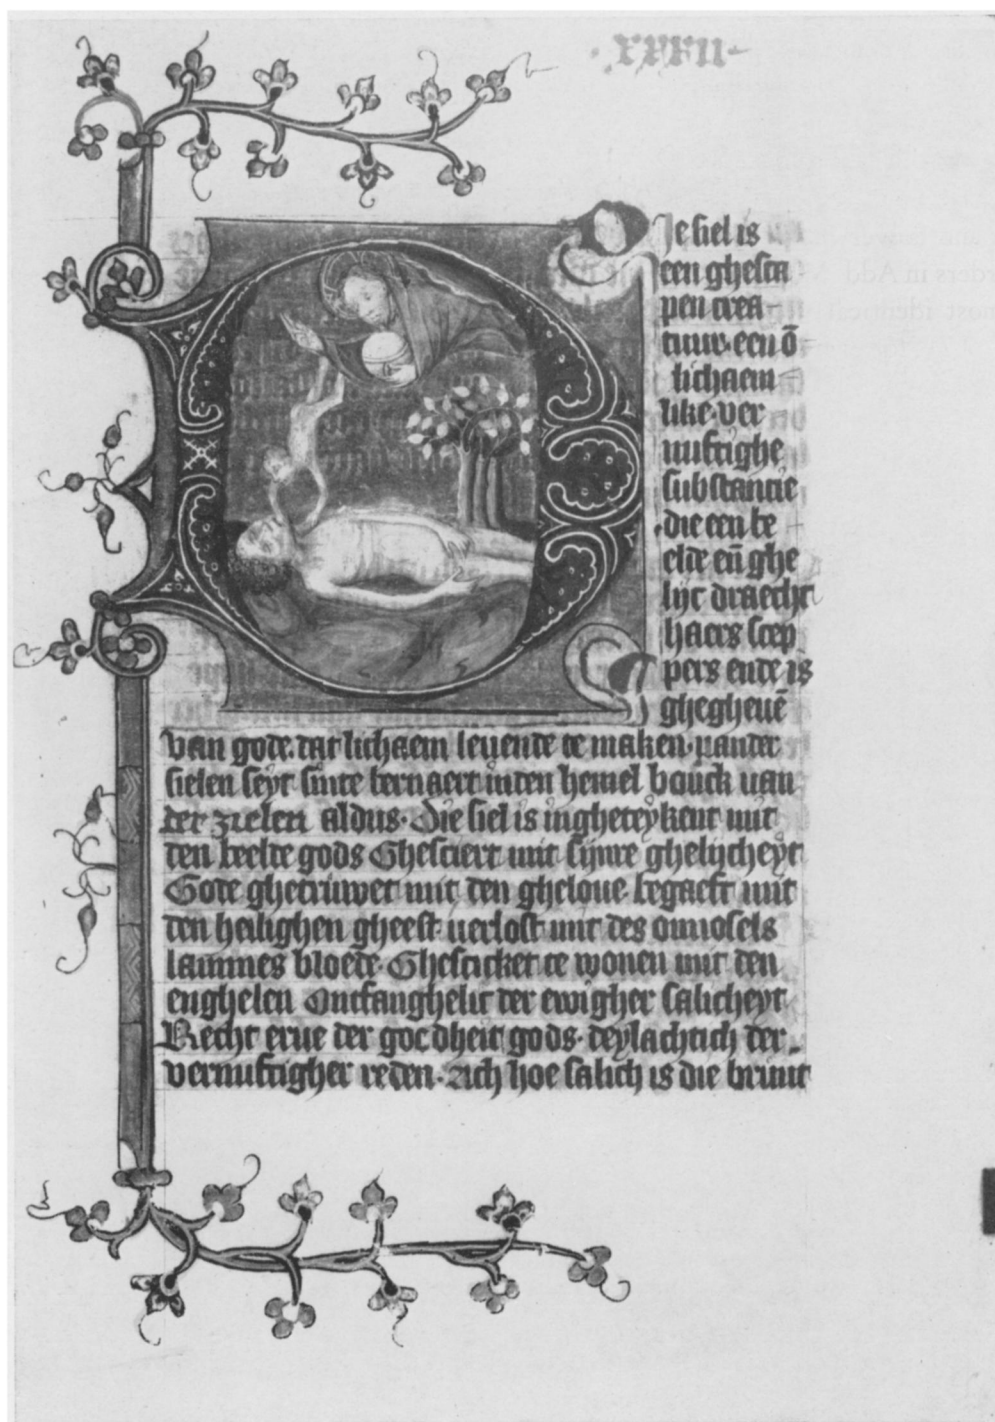 ·XXXII·
Die siel is
een ghesca
pen crea
tuur· een ō
lichaem
like· ver
nuftighe
substancie
·die een be
elde en̄ ghe
lijc draecht
haers scep
pers ende is
ghegheuē
van gode· dat lichaem leuende te maken· vander
sielen seyt sinte bernaert inden hemel bouck van
der zielen aldus· Die siel is ingheteykent mit
den beelde gods Ghesciert mit sijnre ghelijcheyt
Gode ghetruwet mit den gheloue· begaeft mit
den heilighen gheest· verlost mit des onnosels
lammes bloede· Ghescicket te wonen mit den
enghelen Ontfanghelic der ewigher salicheyt
Recht erue der gocdheit gods· deylachtich der
vernuftigher reden· Ach hoe salich is die bruut
rders in Add